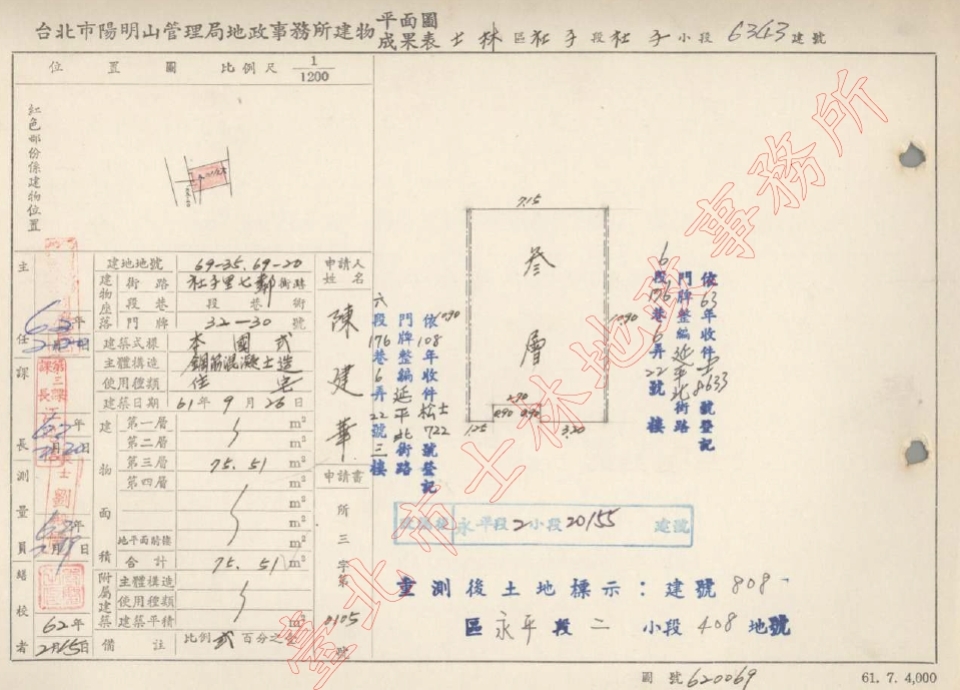 台北市陽明山管理局地政事務所建物平面圖成果表 士林區社子段社子小段6343建號
位置圖 比例尺 1/1200
紅色部份係建物位置
建地地號 69-35.69-20
建物座落 街路 社子里七鄰街路
段巷 段巷衖
門牌 32-30號
建築式樣 本國式
主體構造 鋼筋混凝土造
使用種類 住宅
建築日期 61年9月26日
建物面積
第一層 m²
第二層 m²
第三層 75.51 m²
第四層 m²
m²
m²
地平面騎樓 m²
合計 75.51 m²
附屬建築
主體構造
使用種類
建築平積 m²
備註 比例貳百分之壹
申請人姓名
陳建華
申請書
所三字第
0105
號
主任
課長
測量員
繕校者
62年
2月15日
依108年收件松士722號登記
門牌整編延平北街路
六段176巷6弄22號三樓
7.15
叁層
10.90
10.90
2.70
0.90
0.90
1.25
3.20
依63年收件士8633號登記
門牌整編延平北街路
6段176巷6弄22號樓
永平段2小段20155建號
重測後土地標示：建號808
區永平段二小段408地號
圖號620069
61.7.4,000
臺北市士林地政事務所